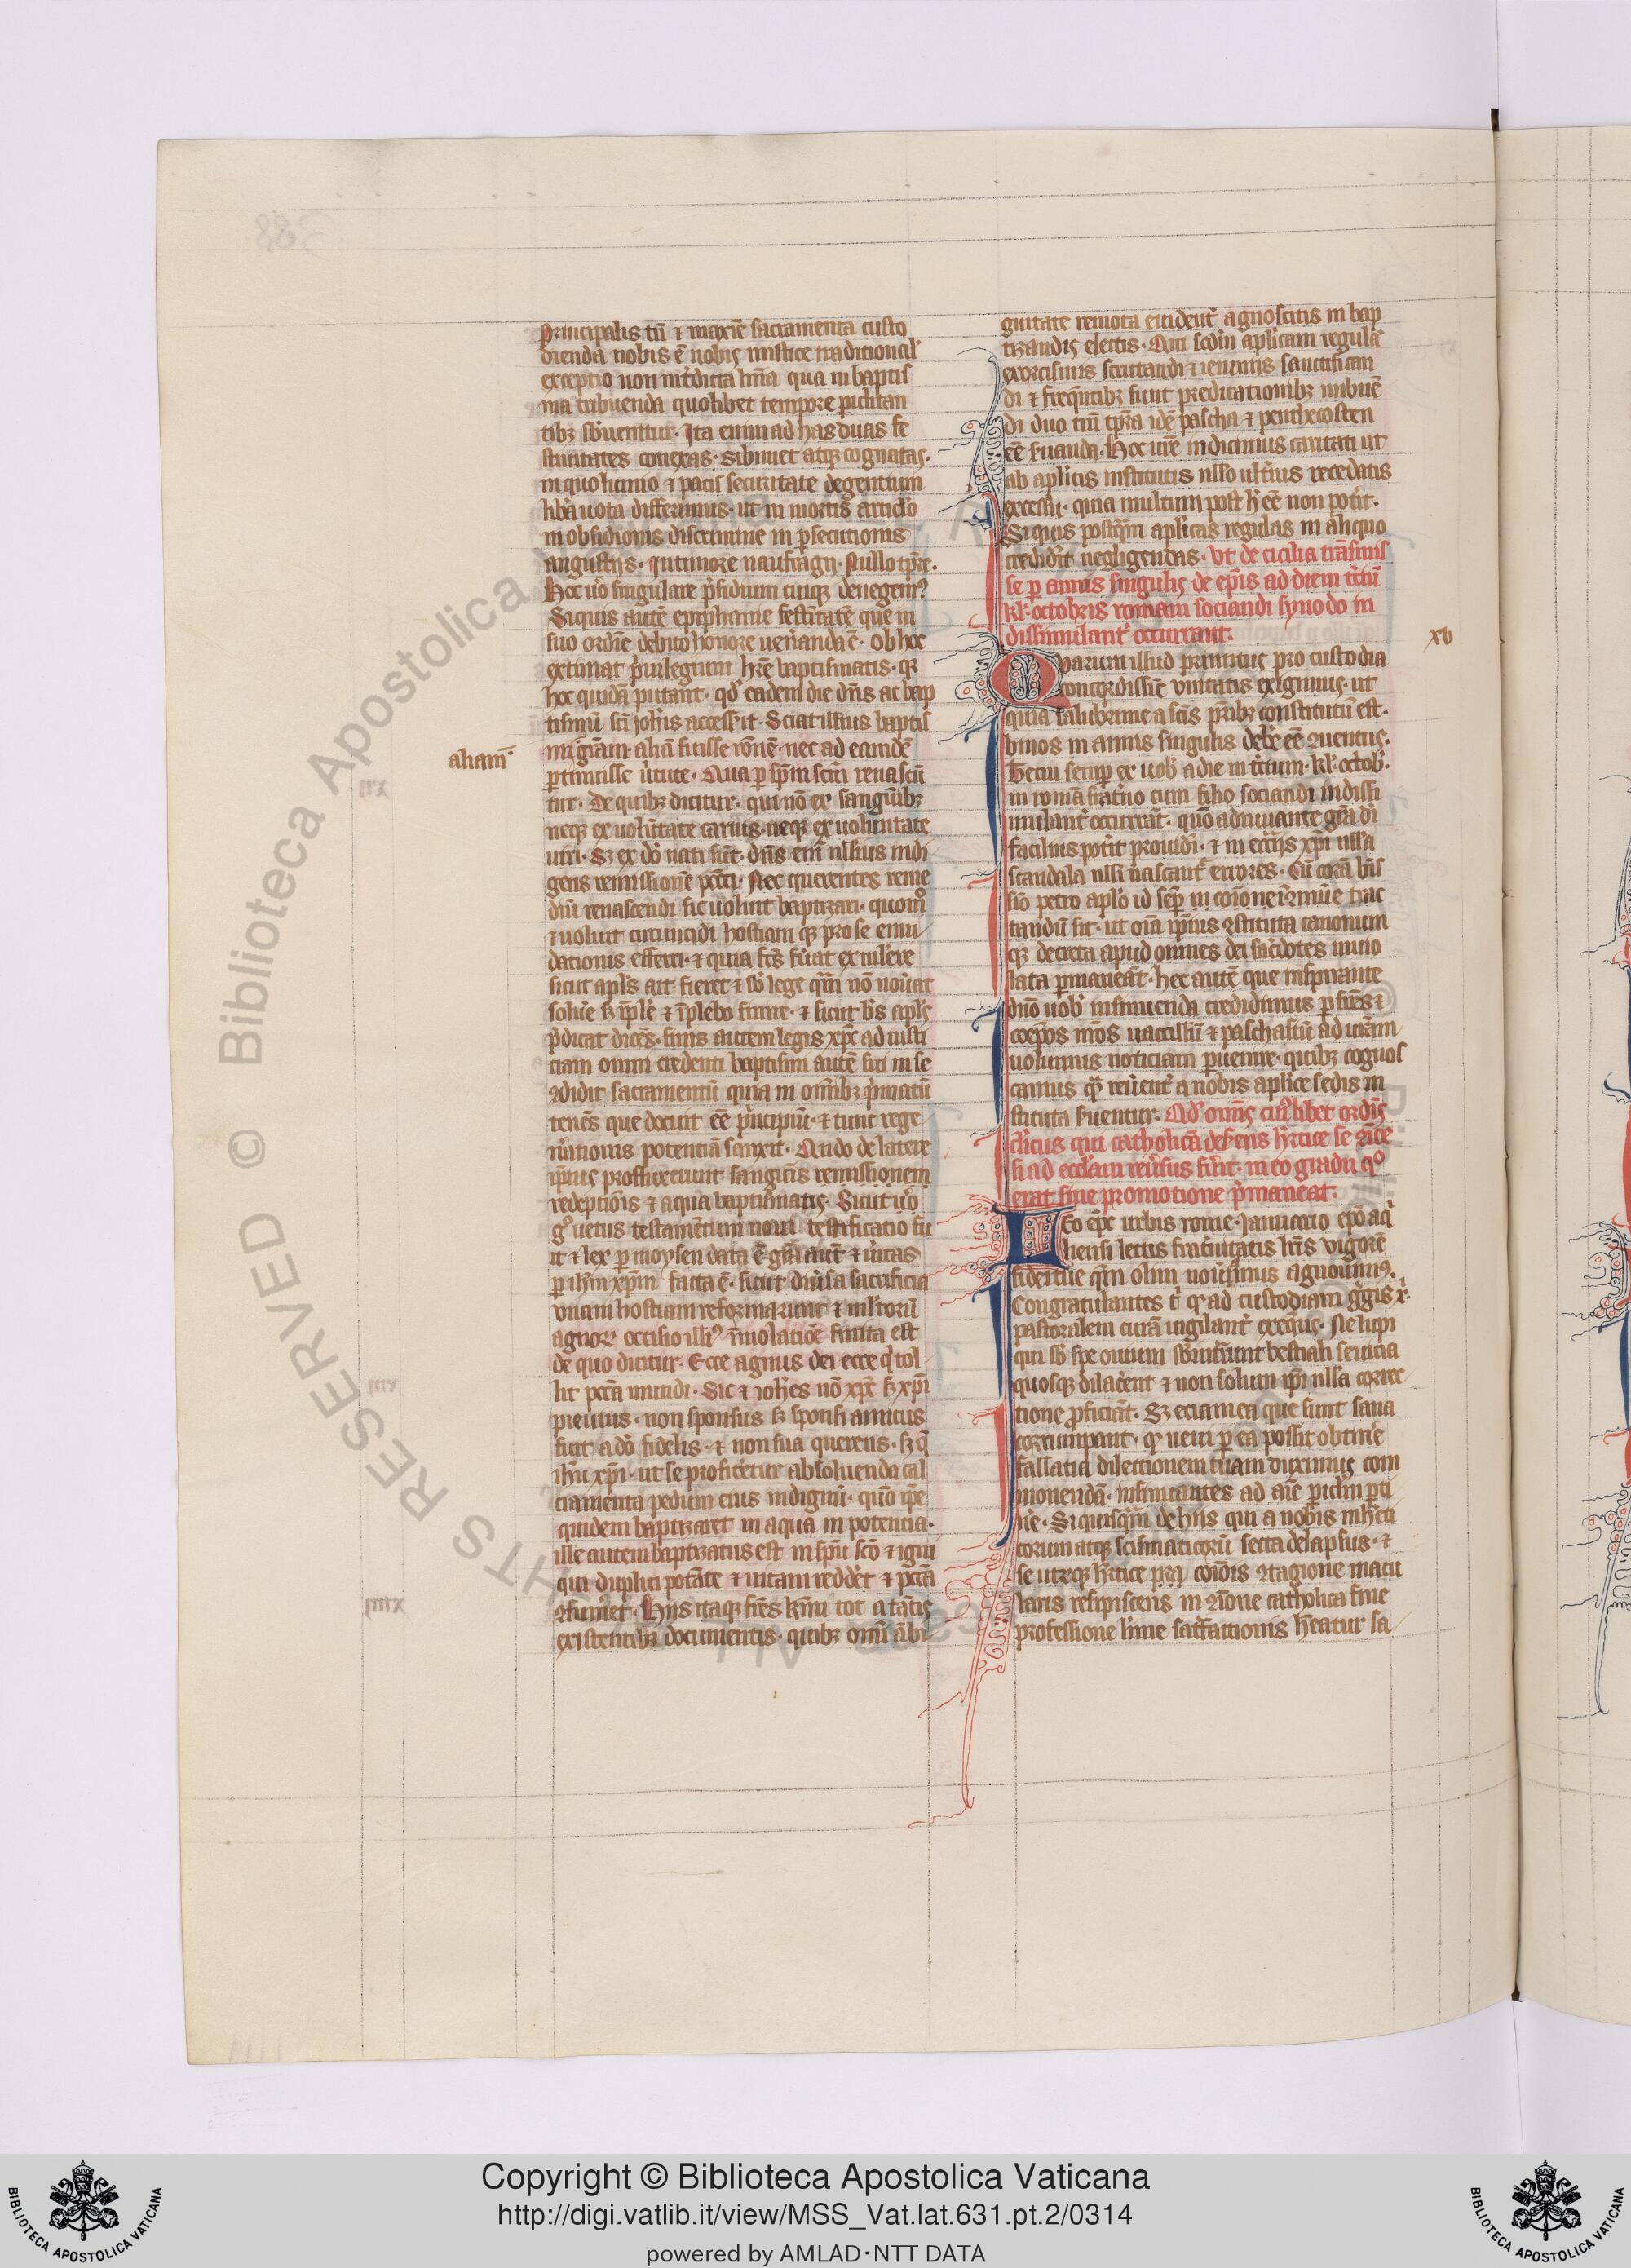 principalis tn̄ ⁊ maxīe sacramenta custo
dienda nobis ē nobis mistice traditional'
exceptio non int̓dicta hn̄a qua in baptis
ma tribuenda quolibet tempore piclitan
tibꝫ sbuenitur. Ita enim ad has duas fe
stiuitates conexas. sibimet atqꝫ cognatas.
in quolicinio ⁊ pacis securitate degentium
lib̓a uota differimus. ut in mortis articlo
in obsidionis discrimine in ꝑsecutionis
angustijs. qn timore naufragij. Nullo tp̄re.
Hoc uo singulare p̓sidium cuiqꝫ denegemꝰ
Siquis autē epyphanie festitatē que in
suo ordīe debito honore uen̓anda ē. ob hoc
extimat p̓uilegium hr̄e baptismatis. qꝛ
hoc quidā putant. qd eadem die dn̄s ac bap
tismū sci joh̄is accessit. Sciat illius baptis
mi grām. aliā fuisse rōnē nec ad eamdē
aliam̄
ꝑtinuisse ūtute. Qua ꝑ sp̄m scm̄ renasci
tur. De quibꝫ dicitur. qui nō ex sanguībꝫ
neqꝫ ex uolūtate carnis. neqꝫ ex uoluntate
uiri. Sꝫ ex dō nati sūt. dn̄s em̄ nllius indi
gens remissionē pcc̄i. Nec querentes reme
diū renascendi sic uoluit baptizari. quomō
⁊ uoluit circuncidi hostiam qꝫ pro se emū
dationis efferri. ⁊ quia fcs̄ fūat ex mliere
sicut apls̄ ait fieret ⁊ sb̓ lege qm̄ nō noūat
solūe sꝫ īple ⁊ īplebo finire. ⁊ sicut bs̄ apls̄
p̓dicat dicēs. finis autem legis xp̄c ad iusti
ciam omni credenti baptismi autē sui in se
ↄdidit sacramentū quia in om̄ibꝫ p̓matū
tenēs que docuit eē p̓ncipiū. ⁊ tunc rege
nationis potenciā sanxit. Qndo de latere
ip̄ius profluxerunt sanguīs remissionem
redeptiōis ⁊ aqua baptismatis. Sicut uo
gͦ uetus testamentum noui testificatio fu
it ⁊ lex ꝑ moysen data ē grā aut̄ ⁊ ūitas
ꝑ ihm̄ xp̄m facta ē. sicut diūsa sacrificia
vnam hostiam reformarunt ⁊ mltorū
agnorꝰ occisio illiꝰ īmolatiōē finita est
de quo dicitur. Ecce agnus dei ecce q̓ tol
lit pcc̄a mundi. Sic ⁊ joh̄es nō xp̄c sꝫ xp̄i
preuius. non sponsus sꝫ sponsi amicus
fuit a dō fidelis. ⁊ non sua querens. sꝫ q̄
ihū xp̄i. ut se profiteret̄ absoluenda cal
ciamenta pedum eius indignū. quō ip̄e
quidem baptizaret in aqua in potencia.
ille autem baptizatus est in spū scō ⁊ igni
qui duplici potāte ⁊ uitam redder̄ ⁊ pcc̄a
ↄsumer̄. Hijs itaqꝫ frēs kmi tot a tātis
existentibꝫ documentis. quibꝫ omī ābi
guitate remota euidenter̄ agnoscitis in bap
tizandis electis. Qui scdm aplicam regulā
exorcismis scrutandi ⁊ ieiunijs sanctifican
di ⁊ freq̄ntibꝫ sunt predicationibꝫ imbuē
di duo tm̄ tpr̄a idē pascha ⁊ penthecosten
eē ſuanda. Hoc ure indicimus caritati ut
ab aplicis institutis nllo ult̓ius recedatis
excessu. quia multum post h̓ eē non pot̓it.
Siquis postq̄m aplicas regulas in aliquo
credider̄it negligendas. Vt de cicilia trāsuns
se ꝑ annus singulis de epis̄ ad diem t̄ciū
kl̓ octobris romam sociandi synodo in
dissimulant̄ occurrant.
xv
Qvarum illud primitus pro custodia
concordissīē vnitatis exigimus. ut
quia saluberrime a scis̄ p̄ribꝫ constitutū est.
binos in annis singulis debēe eē ↄuentus.
Terni semꝑ ex uob̓ a die in t̄cium. kl̓ octob̓.
in romā frat̓no cum filio sociandi indissi
mulant̄ occurrāt. quō adiuuante grā dī
facilius pot̓it prouidi. ⁊ in ecclijs xp̄i nlla
scandala nlli nascant̄ errores. Cū corā bis̄
sīo petro aplo id semꝑ in cōione ↄmūe trac
tandū sit. ut oīa ip̄ius ↄstituta canonum
qꝫ decreta apud omnes dei sacdotes inuio
lata ꝑmaneāt. hec autē que inspirante
dn̄o uob̓ insinuenda credidimus ꝑ frēs ⁊
coep̄os nrōs uaccillū ⁊ paschasiū ad urām
uolumus noticiam ꝑuenire. quibꝫ cognos
camus qͣ reūent̄ a nobis aplice sedis in
stituta suentur. Qd̓ om̄is cuiꝰlibet ordīs
clicus qui catholicā deserens hr̄tice se ↄīce
si ad eccl̓am reūsus fūit. in eo gradu qͦ
erat sine promotione p̓maneat.
Leo epc̄ urbis rome. januario epō aq̓
liensi lectis frat̓nitatis lrīs vigorē
fidei tue qm̄ olim noūamus agnouimꝰ.
Congratulantes t̓ qꝫ ad custodiam gg̓is x̄.
pastoralem curā uigilant̄ exequis. Ne lupi
qui sb̓ spe ouium sbintrāunt bestiali seuicia
quosqꝫ dilacent ⁊ non solum ip̄i nlla correc
tione ꝓficiāt. Sꝫ eciam ea que sunt sana
corrumpant. qꝫ neui ꝑ ea possit obtinēe
fallatia dilectionem tuam duximus com
monendā. insinuantes ad aīe piclm pti
nēe. Si quisqm̄ de hijs qui a nobis in heti
corum atqꝫ scismaticorū secta delapsus. ⁊
se utrqꝫ hr̄tice prāȝ cōiōis ↄtagione macu
laris resipiscens in ↄīone catholica sine
professione l̓ime satisfactionis heatur sa
Copyright © Biblioteca Apostolica Vaticana
http://digi.vatlib.it/view/MSS_Vat.lat.631.pt.2/0314
powered by AMLAD·NTT DATA
BIBLIOTECA APOSTOLICA VATICANA
BIBLIOTECA APOSTOLICA VATICANA